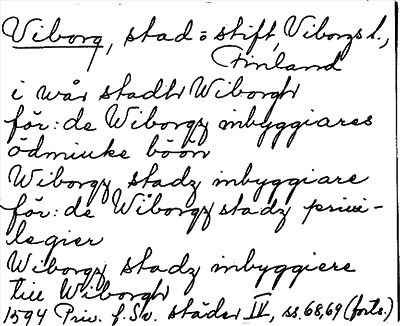 Viborg, stad o stift, Viborgs l.,
Finland
i wår stadh Wiborgh
för: de Wiborgz inbyggiares
ödmiuke böön
Wiborgz stadz inbyggiare
för: de Wiborgz stadz privi-
legier
Wiborgz stadz inbyggiere
till Wiborgh
1594 Priv. f. Sv. städer II, ss. 68, 69 (forts.)